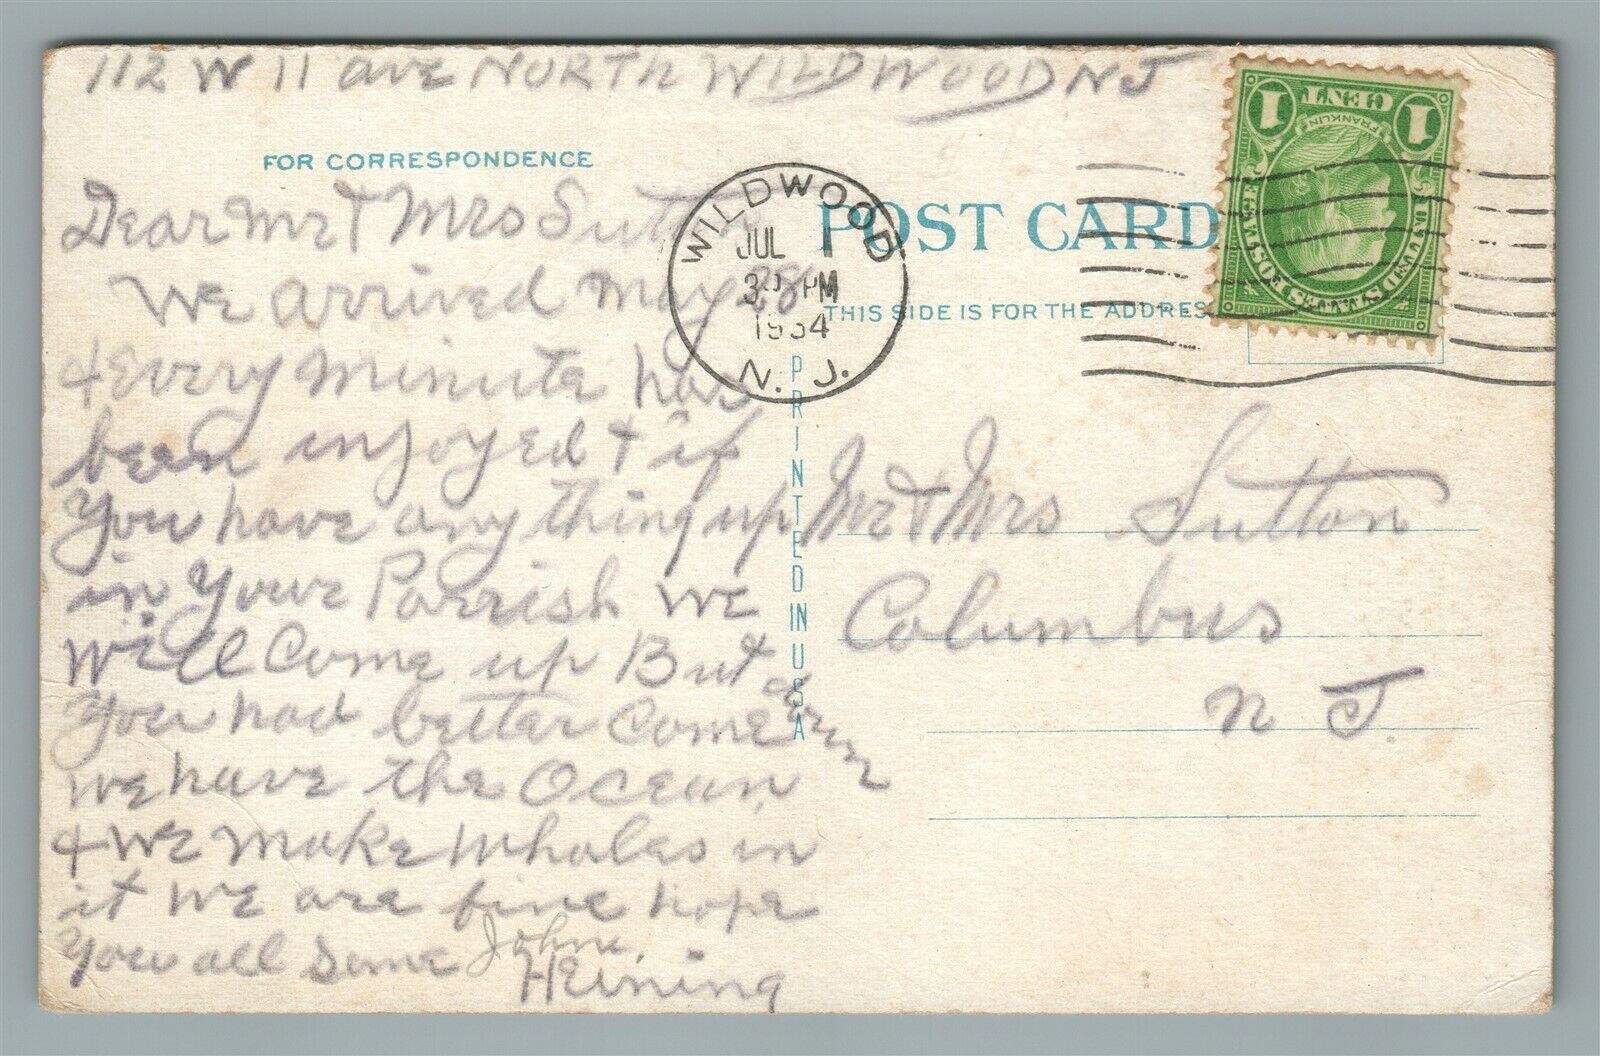 112 W 11 ave NORTH WILDWOOD N J
FOR CORRESPONDENCE
Dear Mr & Mrs Sutton
We arrived may 28
& Every minute has
been injoyed & if
You have any thing up
in Your Parrish we
will Come up But &
You had better Come down
we have the Ocean,
& we make whales in
it we are fine hope
You all Same John,
Heining
WILDWOOD
JUL 1
3 PM
1934
N. J.
POST CARD
THIS SIDE IS FOR THE ADDRESS
PRINTED IN USA
1 CENT 1
FRANKLIN
UNITED STATES POSTAGE
Mr & Mrs Sutton
Columbus
N J.